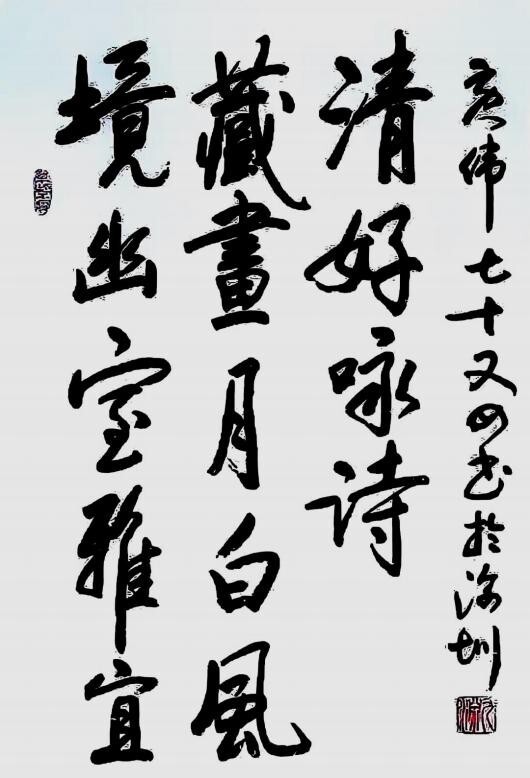 境幽室雅宜
藏畫月白風
清好咏诗
偉七十又四书於深圳